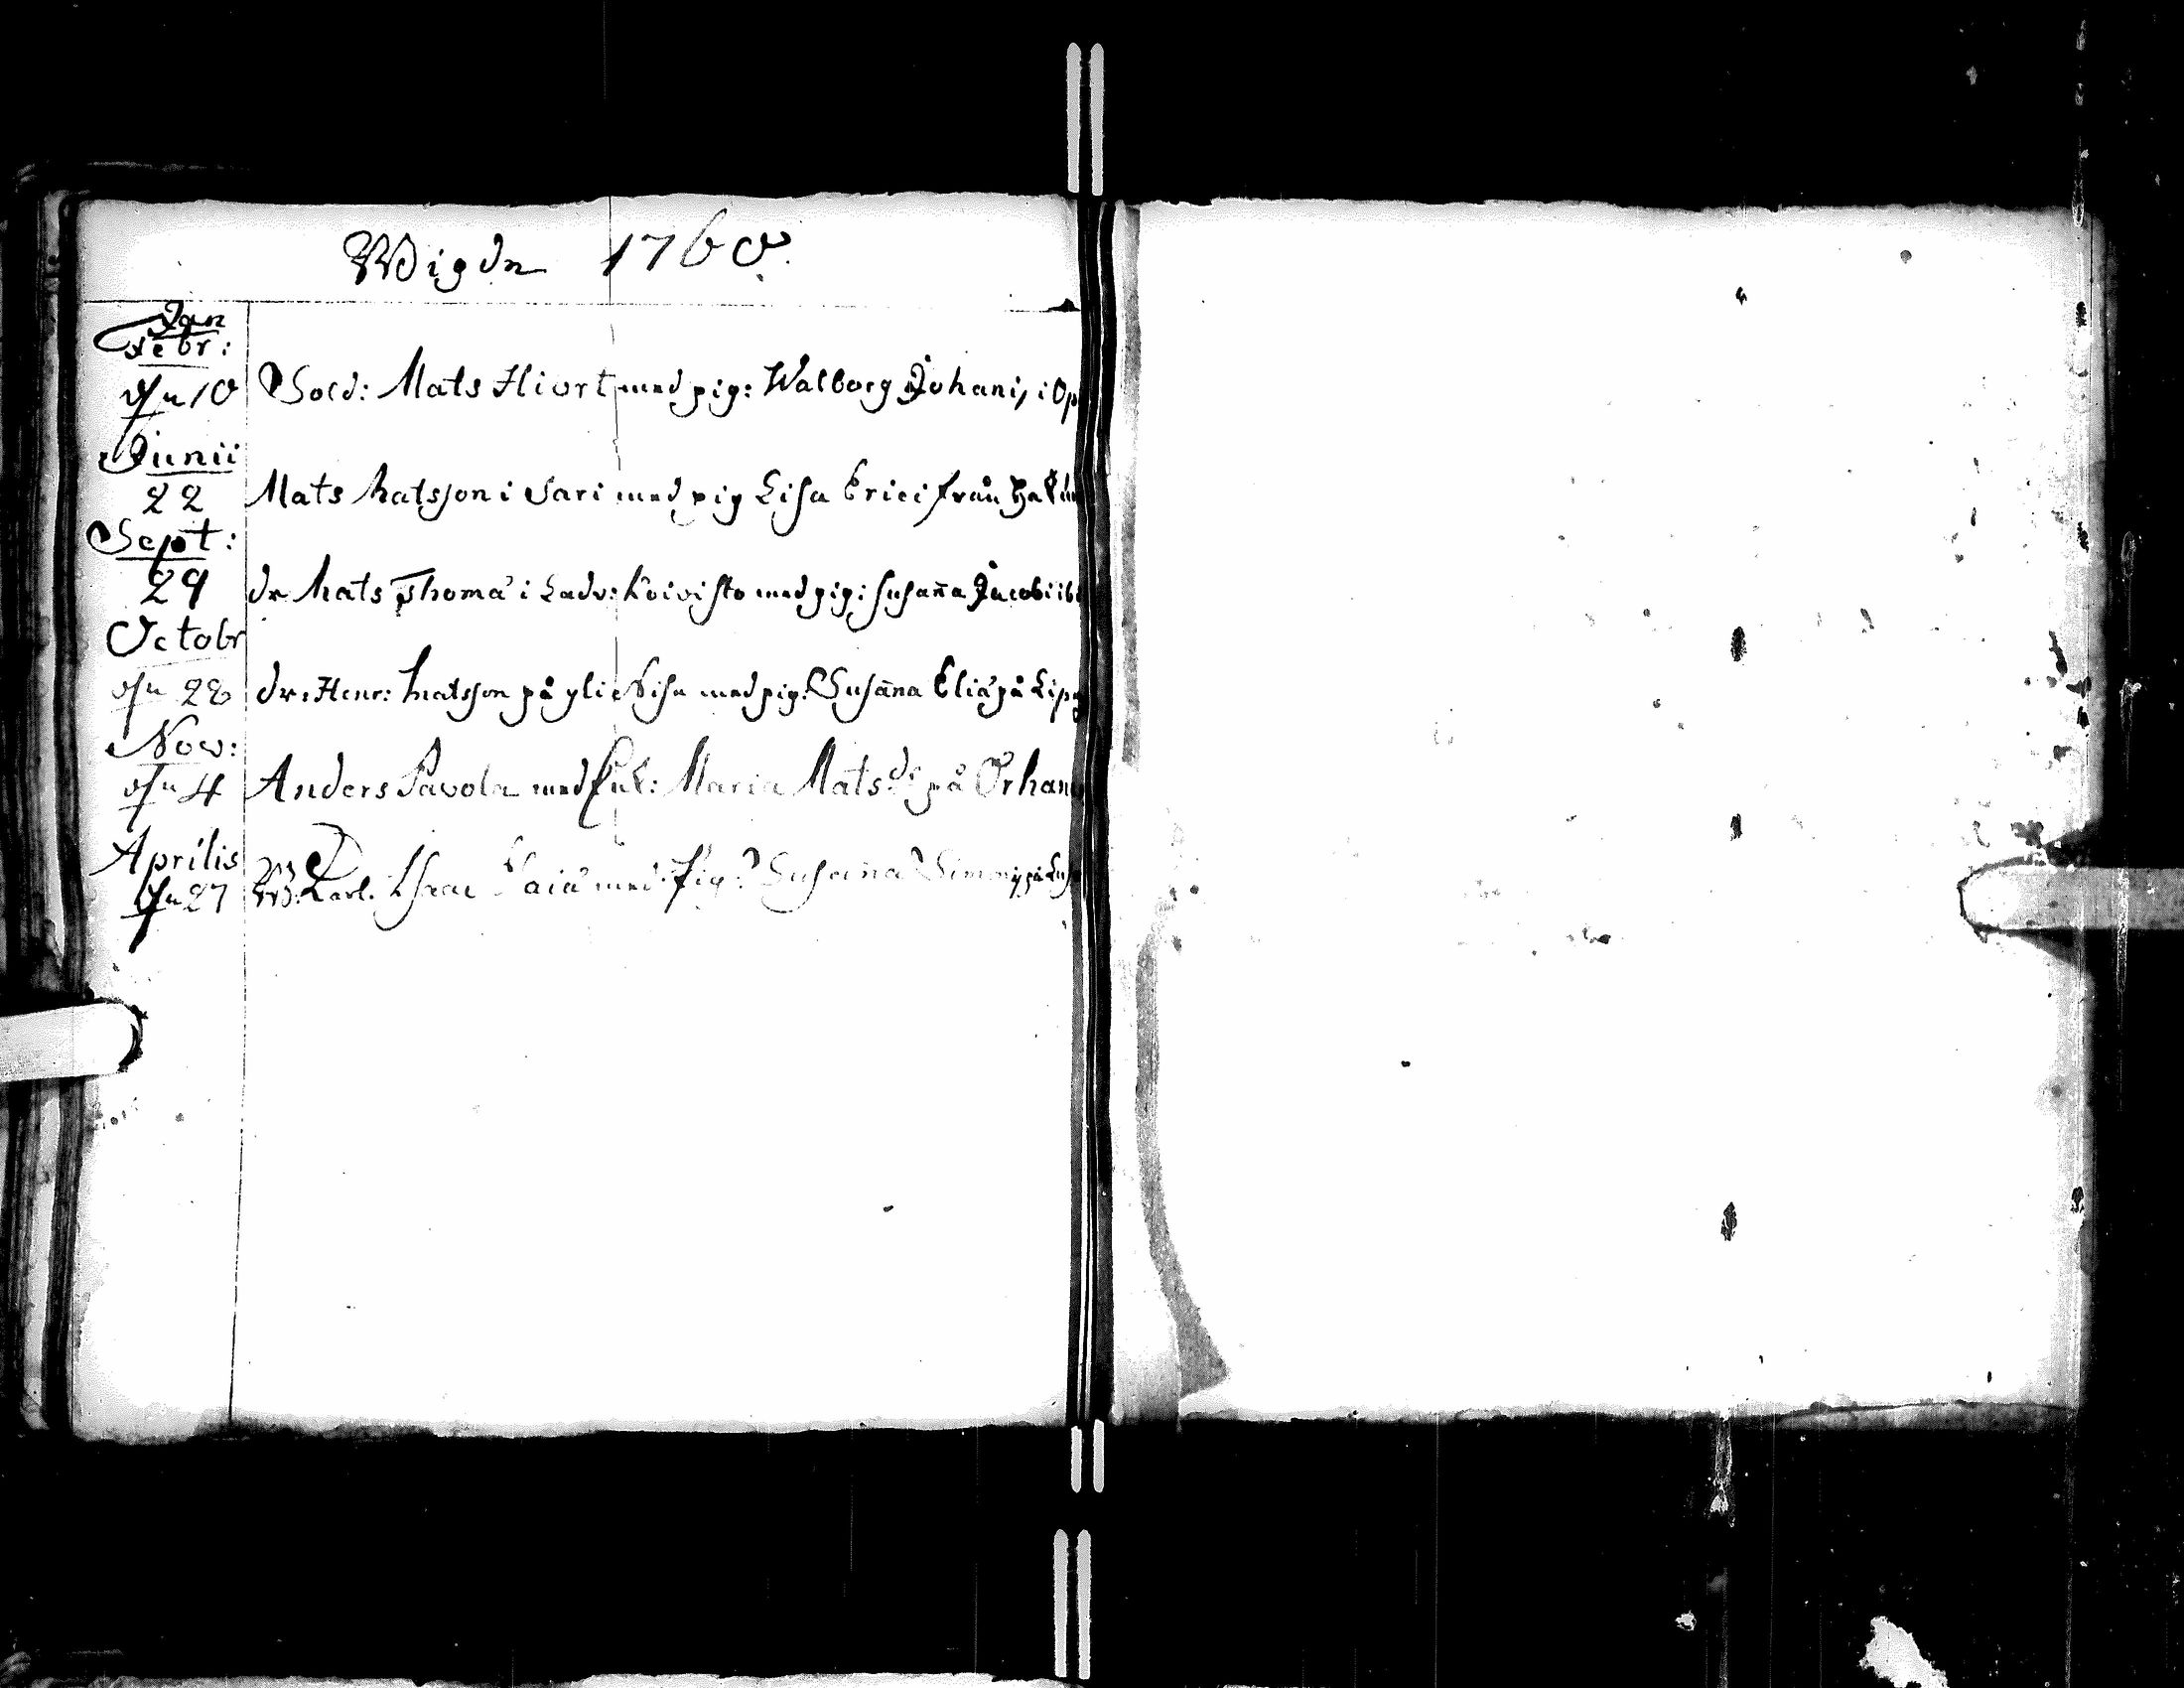 Wigde 1760.
Jan
Febr:
d. 10 Sold: Mats Hiort med pig: Walborg Johani, i Op
Junii
22 Mats Matsson i Sari med pig Lisa Erici från
Sept:
29 dr Mats Thomæ i Ladv: Koivisto med pig: Susaña Jacobi ib
Octobr
d. 28 dr: Henr: Matsson på yli Sisu med pig: Susaña Eliæ på Lip
Nov:
d. 4 Anders Pavola med Enk: Maria Mats dr på Orhan
Aprilis
d. 27 Isaac med Pig: Susaña Simonis på